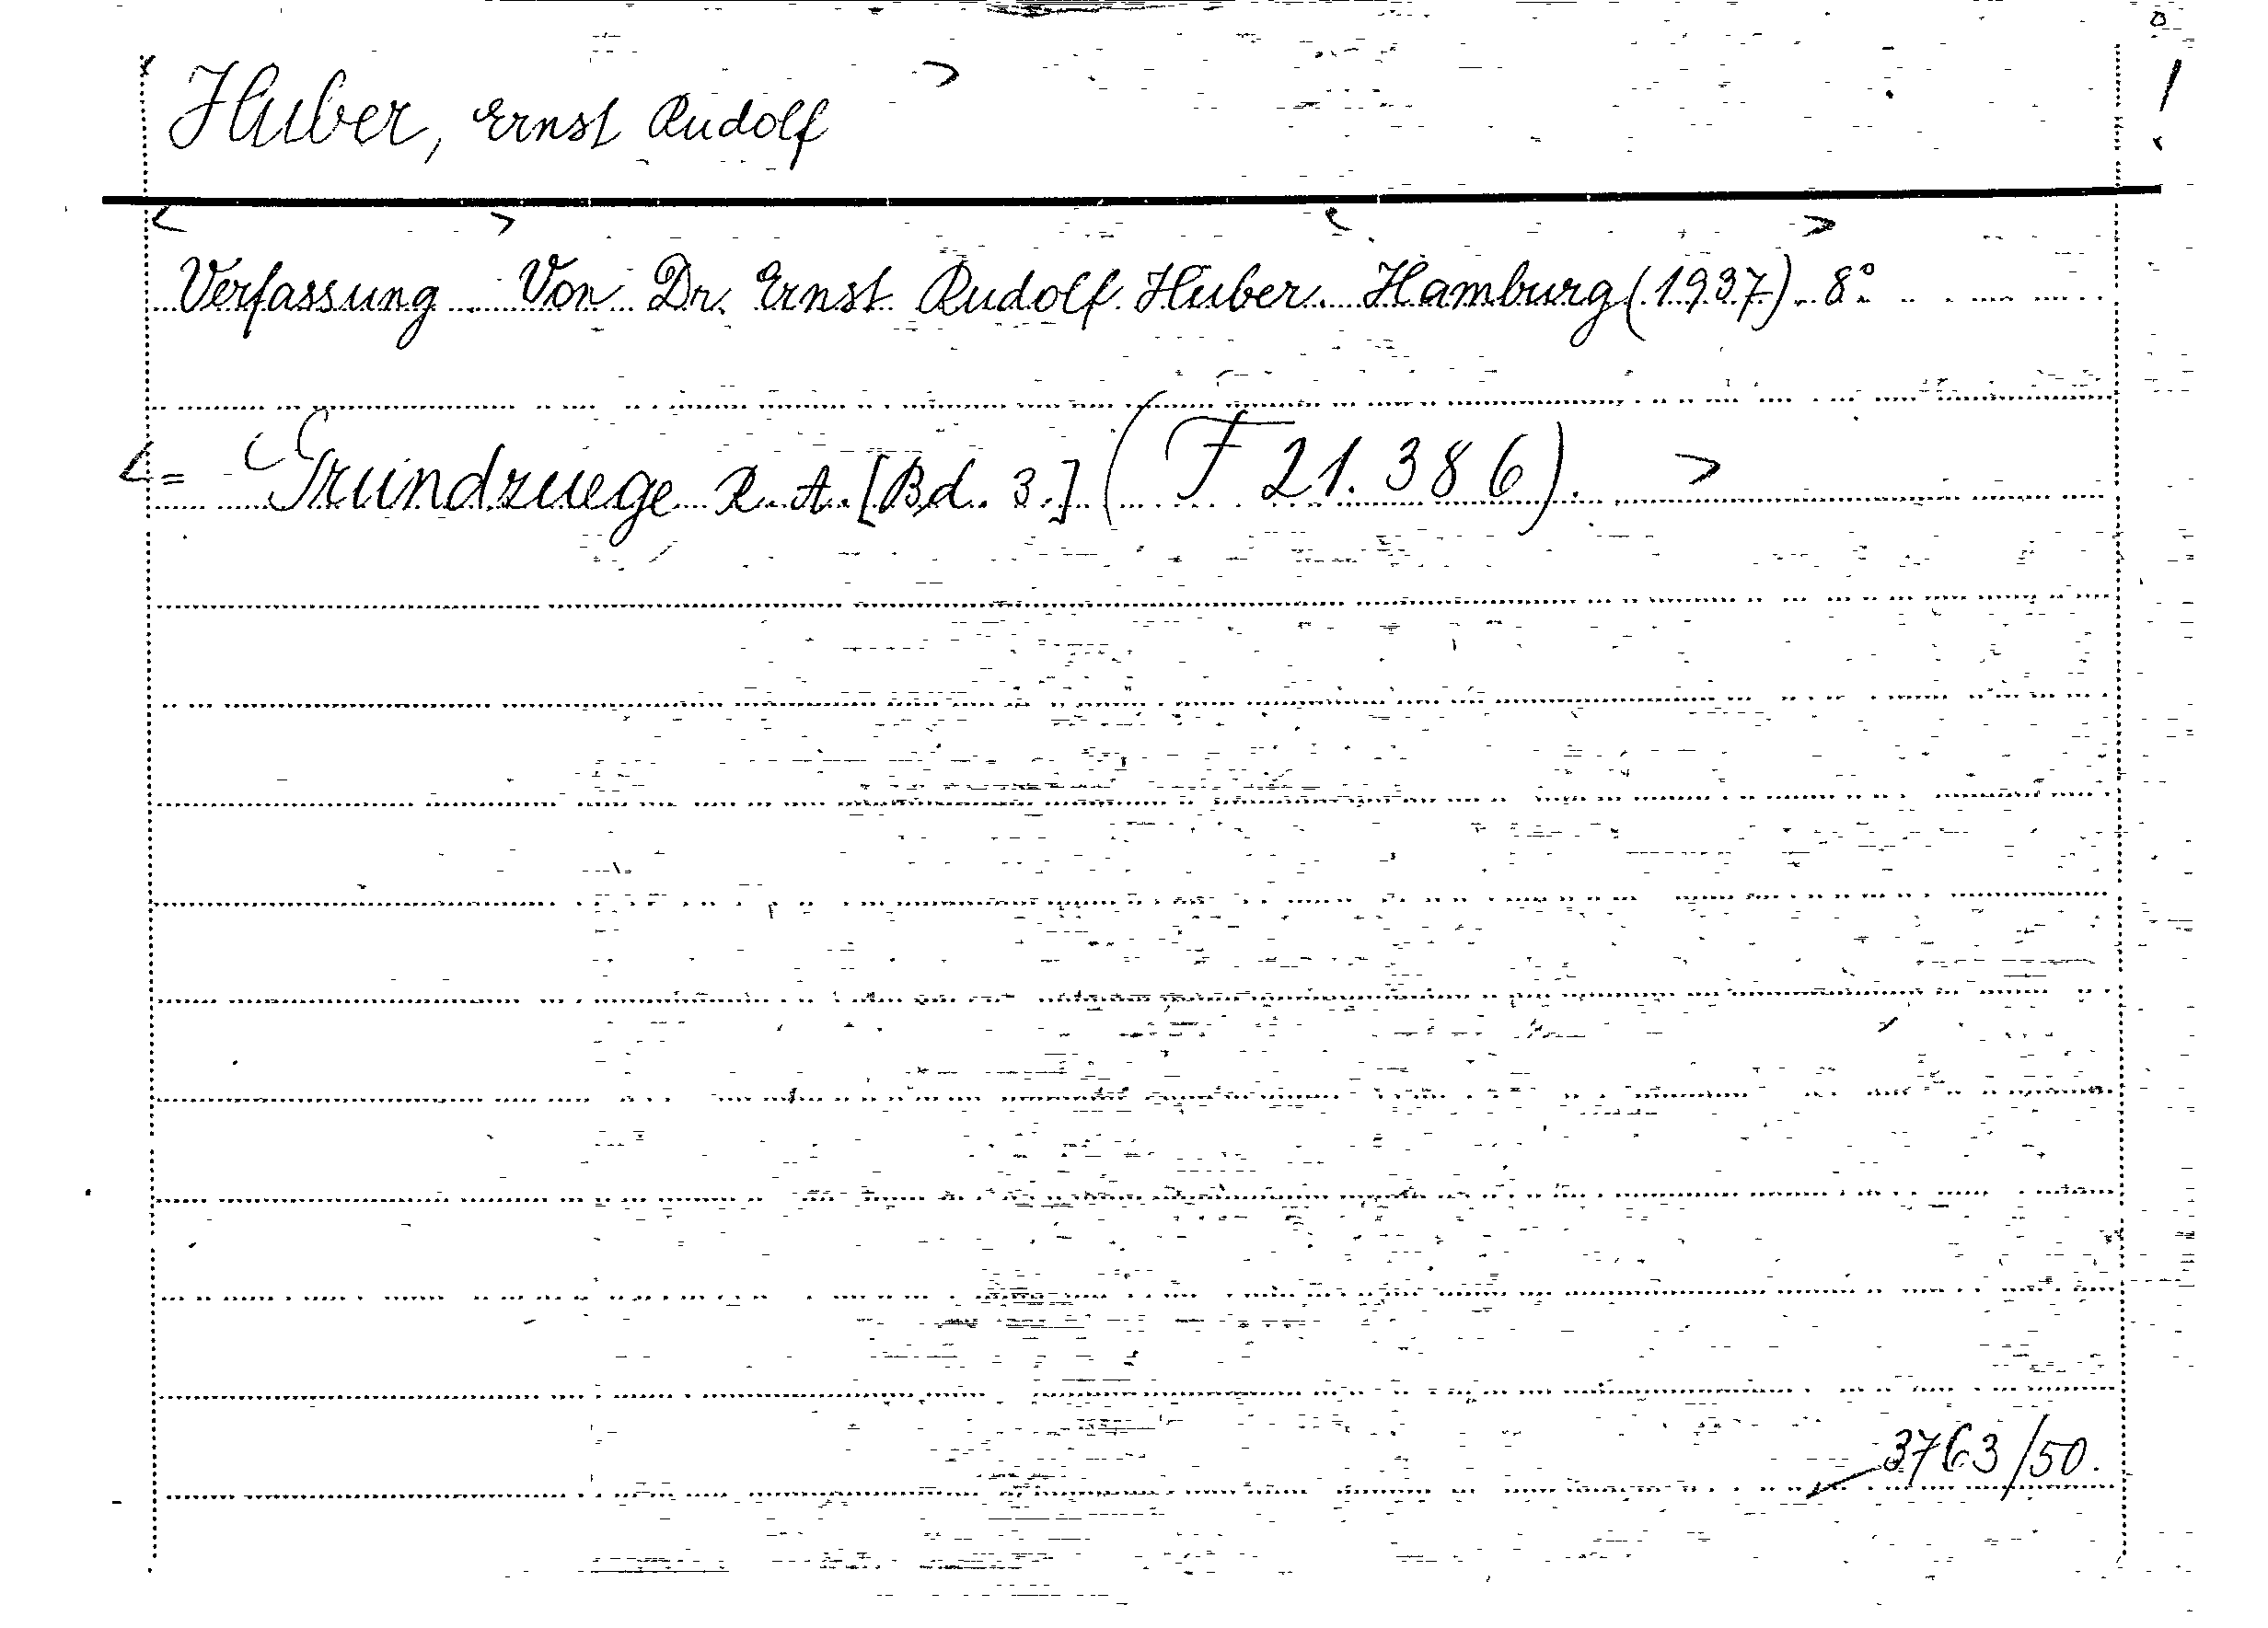 Huber, Ernst Rudolf
Verfassung. Von Dr. Ernst Rudolf Huber. Hamburg (1937). 8°
= Grundzuege R. A. [Bd. 3.] (F 21.386).
3763/50.